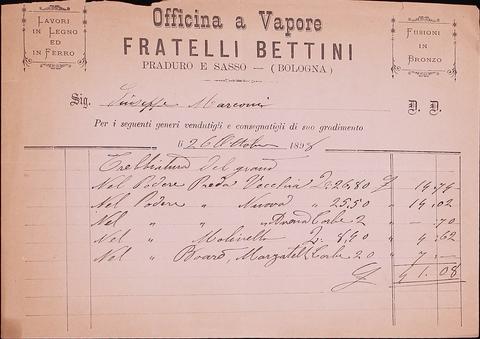 LAVORI
IN LEGNO
ED
IN FERRO
Officina a Vapore
FRATELLI BETTINI
PRADURO E SASSO — (BOLOGNA)
FUSIONI
IN
BRONZO
Sig. Giuseppe Marconi D. D.
Per i seguenti generi vendutigli e consegnatigli di suo gradimento
il 26 Ottobre 1898
Trebbiatura del grano
Nel Podere Preda Vecchia Q: 26,80 £ 14,74
Nel Podere " Nuova " 25,50 " 14,02
Nel " " " Corbe 2 " — 70
Nel " Molinello Q: 8,40 " 4,62
Nel " Corbe 20 " 7 —
£ 41.08